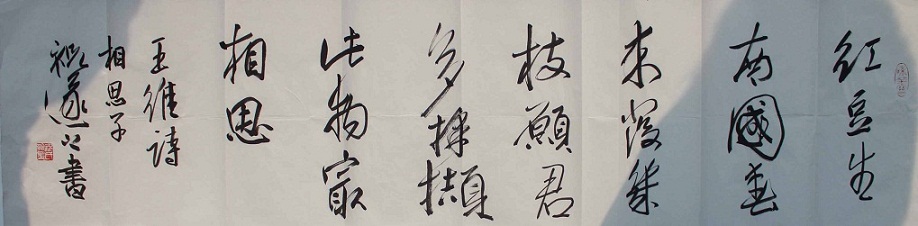 红豆生
南國春
来發幾
枝願君
多採擷
此物最
相思
王維詩
相思子
書